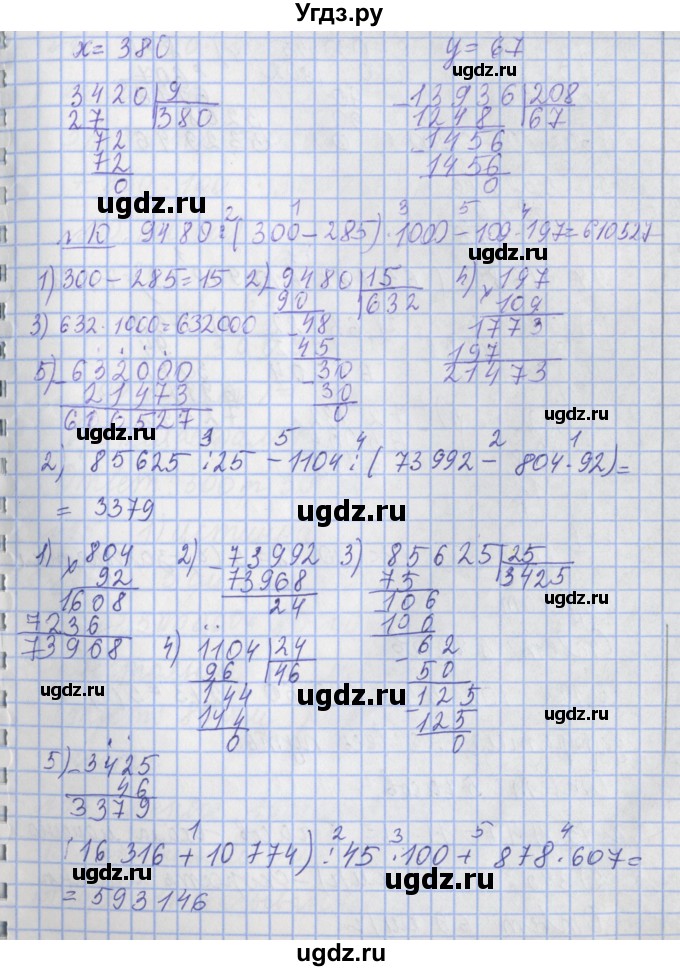 Угдз.ру
x = 380 y = 67
ugdz.ru
3420 9 -13936 208
27 380 1248 67
72 -1456
72 1456
0 0
ugdz.ru ugdz.ru
2 1 3 5 4
9480 : (300 - 285) · 1000 - 109 · 197 = 610527
1) 300 - 285 = 15 2) -9480 15 4) ×197
90 632 109
3) 632 · 1000 = 632000 -48 1773
45 197
5) -632000 -30 21473
21473 30
610527 0 ugdz.ru
ugdz.ru
3 5 4 2 1
2) 85625 : 25 - 1104 : (73992 - 804 · 92) =
= 3379 ugdz.ru ugdz.ru
1) ×804 2) -73992 3) 85625 25
92 73968 75 3425
1608 24 106
7236 100
73968 4) 1104 24 -62
96 46 50
144 -125
144 125
0 0
ugdz.ru ugdz.ru ugdz.ru
5) -3425
46
3379
1 2 3 5 4
(16 316 + 10 774) : 45 · 100 + 878 · 607 =
ugdz.ru ugdz.ru
= 593146
ugdz.ru
ugdz.ru